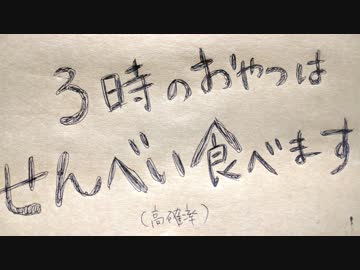 3時のおやつは
せんべい食べます
(高確率)